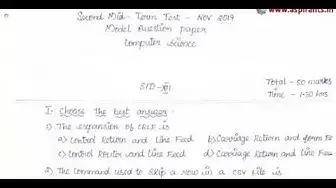 www.aspirants.in
Second Mid - Term Test - Nov 2019
Model Question paper
Computer Science
STD - XII
Total - 50 marks
Time - 1.30 hrs
I. Choose the best answer:
1) The expansion of CRLF is
a) Control Return and Line Feed b) Carriage Return and Form Fe
c) Control Router and Line Feed d) Carriage Return and Line Fee
2) The command used to skip a row in a CSV file is